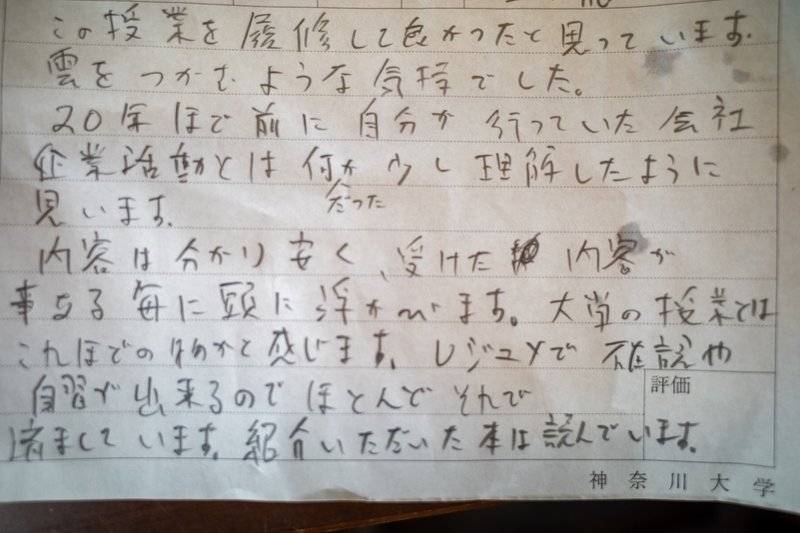 この授業を履修して良かったと思っています。
雲をつかむような気持でした。
20年ほど前に自分が行っていた会社
企業活動とは何か少し理解したように
だった
思います。
内容は分かり安く、受けた内容が
事ある毎に頭に浮かびます。大学の授業とは
これほどの物かと感じます。レジュメで確認や
自習が出来るのでほとんどそれで
済ましています。紹介いただいた本は読んでいます。
評価
神奈川大学